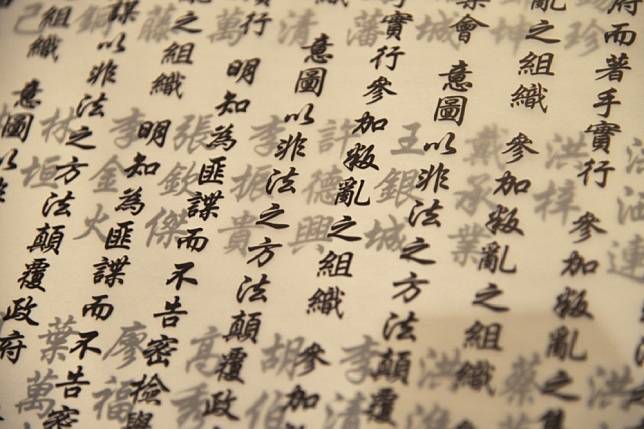 府而著手實行 參加叛亂之
亂之組織 參加叛亂之組織
集會 意圖以非法之方法顛覆
實行參加叛亂之組織 參加
意圖以非法之方法顛覆政
行 明知為匪諜而不告密檢舉
之組織 明知為匪諜而不告密
諜以非法之方法顛覆政府
組織 意圖以非
珍
連
坤 洪梓 洪
城 戴承業 蔡
王銀城 洪
藩 許德興 李清
清 李振貴 胡伯
萬 張欽傑 高秀
藤 李金火 廖福
林垣 葉萬
己